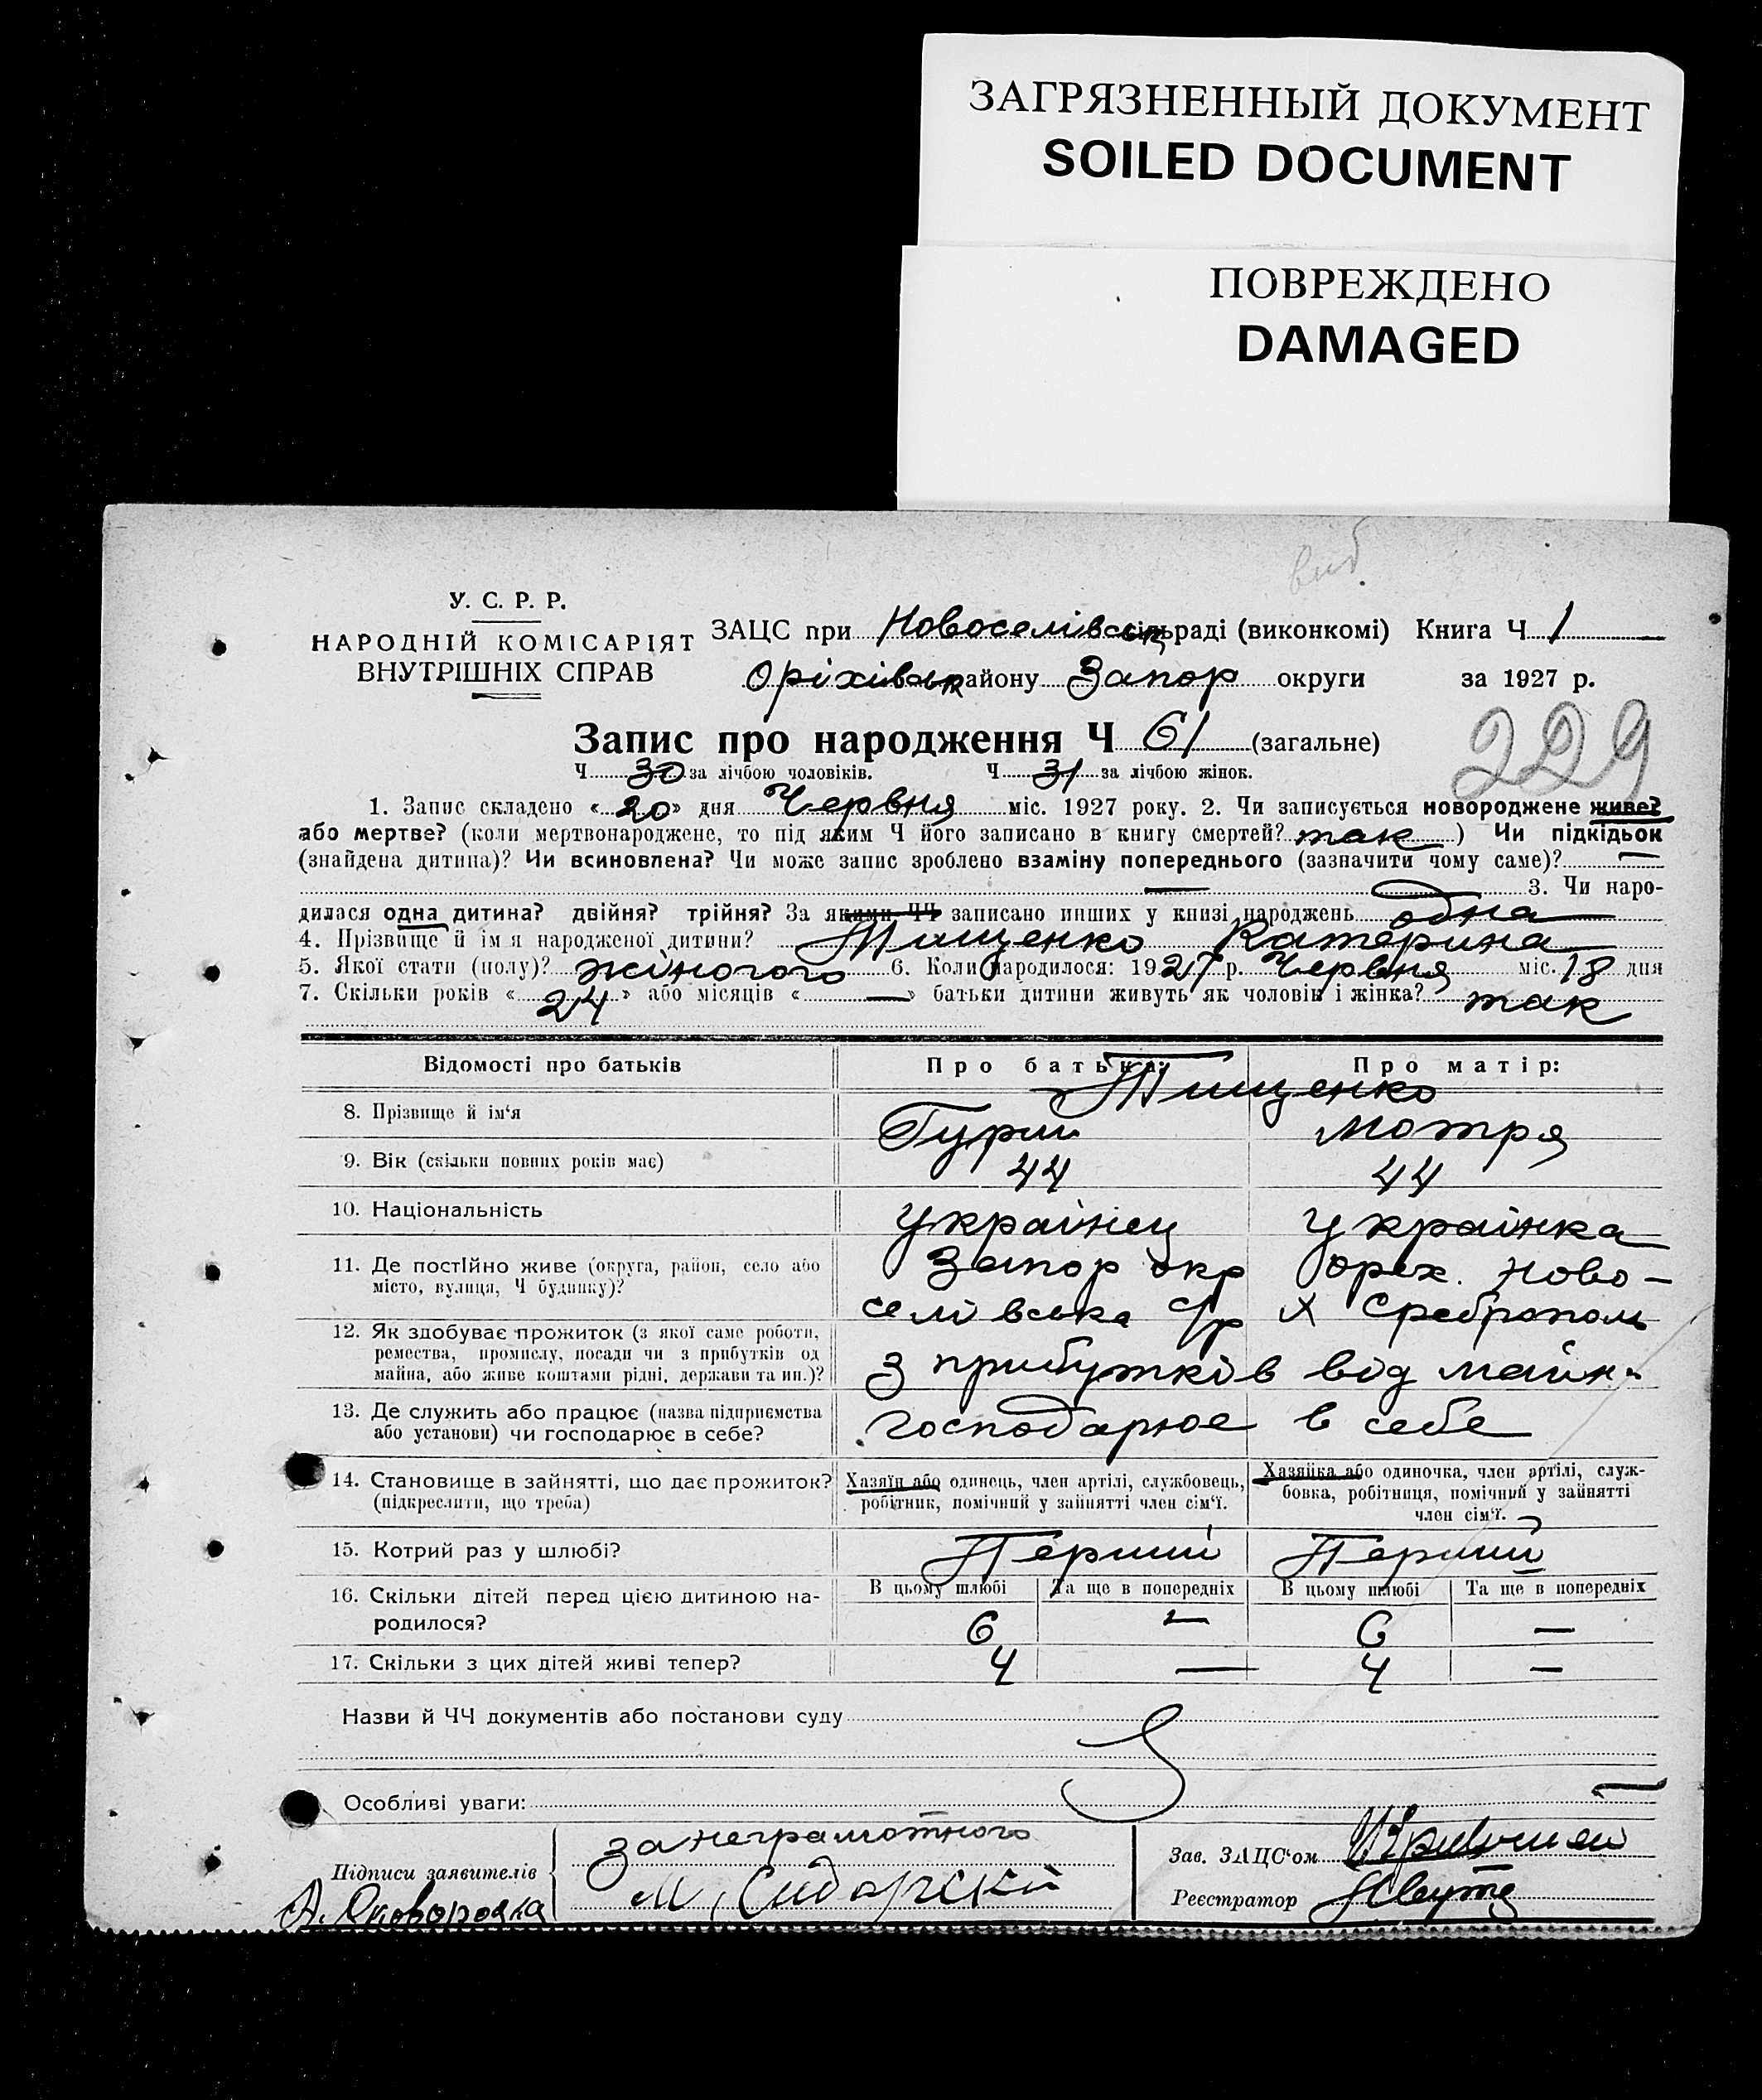 ЗАГРЯЗНЕННЫЙ ДОКУМЕНТ
SOILED DOCUMENT
ПОВРЕЖДЕНО
DAMAGED
У. С. Р. Р.
НАРОДНІЙ КОМІСАРІЯТ
ВНУТРІШНІХ СПРАВ
ЗАЦС при Новоселівськ сільраді (виконкомі) Книга Ч 1
Оріхівськ району Запор округи за 1927 р.
229
Запис про народження Ч 61 (загальне)
Ч 30 за лічбою чоловіків. Ч 31 за лічбою жінок.
1. Запис складено «20» дня Червня міс. 1927 року. 2. Чи записується новороджене живе?
або мертве? (коли мертвонароджене, то під яким Ч його записано в книгу смертей? так ) Чи підкідьок
(знайдена дитина)? Чи всиновлена? Чи може запис зроблено взаміну попереднього (зазначити чому саме)? —
— 3. Чи наро-
дилася одна дитина? двійня? трійня? За якими ЧЧ записано инших у книзі народжень одна
4. Прізвище й ім'я народженої дитини? Тищенко Катерина
5. Якої стати (полу)? жіночого 6. Коли народилося: 1927 р. Червня міс. 18 дня
7. Скільки років «24» або місяців «—» батьки дитини живуть як чоловік і жінка? так
Відомості про батьків Про батька: Про матір:
Тищенко
8. Прізвище й ім'я Гурій Мотря
9. Вік (скільки повних років має) 44 44
10. Національність Українец Українка
11. Де постійно живе (округа, район, село або
місто, вулиця, Ч будинку)?
Запор окр Оріх. Ново-
селівська с/р х Среброполь
12. Як здобуває прожиток (з якої саме роботи,
ремества, промислу, посади чи з прибутків од
майна, або живе коштами рідні, держави та ин.)?
з прибутків від майн.
13. Де служить або працює (назва підприємства
або установи) чи господарює в себе?
господарює в себе
14. Становище в зайнятті, що дає прожиток?
(підкреслити, що треба)
Хазяїн або одинець, член артілі, службовець,
робітник, помічний у зайнятті член сім'ї.
Хазяйка або одиночка, член артілі, служ-
бовка, робітниця, помічний у зайнятті
член сім'ї.
15. Котрий раз у шлюбі? Перший Перший
16. Скільки дітей перед цією дитиною на-
родилося?
В цьому шлюбі Та ще в попередніх В цьому шлюбі Та ще в попередніх
6 — 6 —
17. Скільки з цих дітей живі тепер? 4 — 4 —
Назви й ЧЧ документів або постанови суду
Особливі уваги:
Підписи заявителів
за неграмотного
Зав. ЗАЦС'ом
Реєстратор